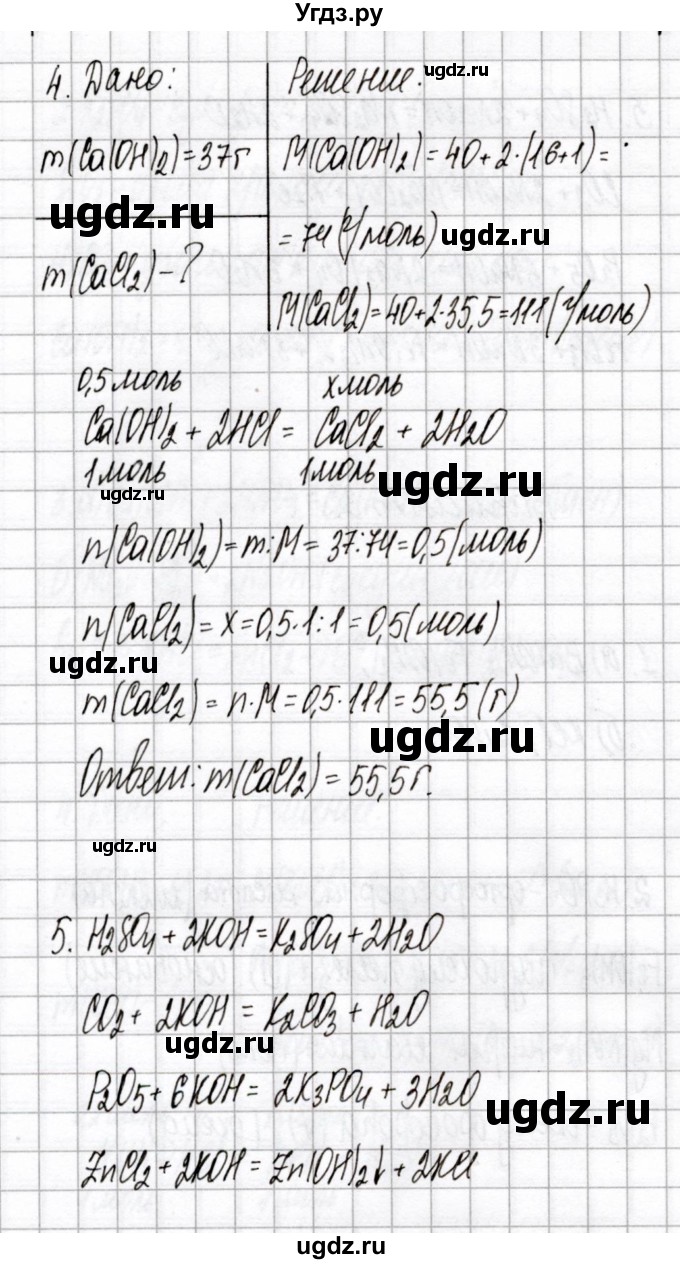 Угдз.ру
4. Дано: Решение:
ugdz.ru
m(Ca(OH)2)=37г M(Ca(OH)2)=40+2·(16+1)=
ugdz.ru
=74(г/моль)
ugdz.ru
m(CaCl2)-?
M(CaCl2)=40+2·35,5=111(г/моль)
0,5моль xмоль
Ca(OH)2+2HCl= CaCl2 + 2H2O
1моль 1моль
ugdz.ru
ugdz.ru
n(Ca(OH)2)=m:M=37:74=0,5(моль)
n(CaCl2)=x=0,5·1:1=0,5(моль)
ugdz.ru
m(CaCl2)=n·M=0,5·111=55,5(г)
ugdz.ru
Ответ: m(CaCl2)=55,5г.
ugdz.ru
5. H2SO4+2KOH=K2SO4+2H2O
CO2+2KOH=K2CO3+H2O
ugdz.ru
P2O5+6KOH=2K3PO4+3H2O
ugdz.ru
ZnCl2+2KOH=Zn(OH)2↓+2KCl
ugdz.ru